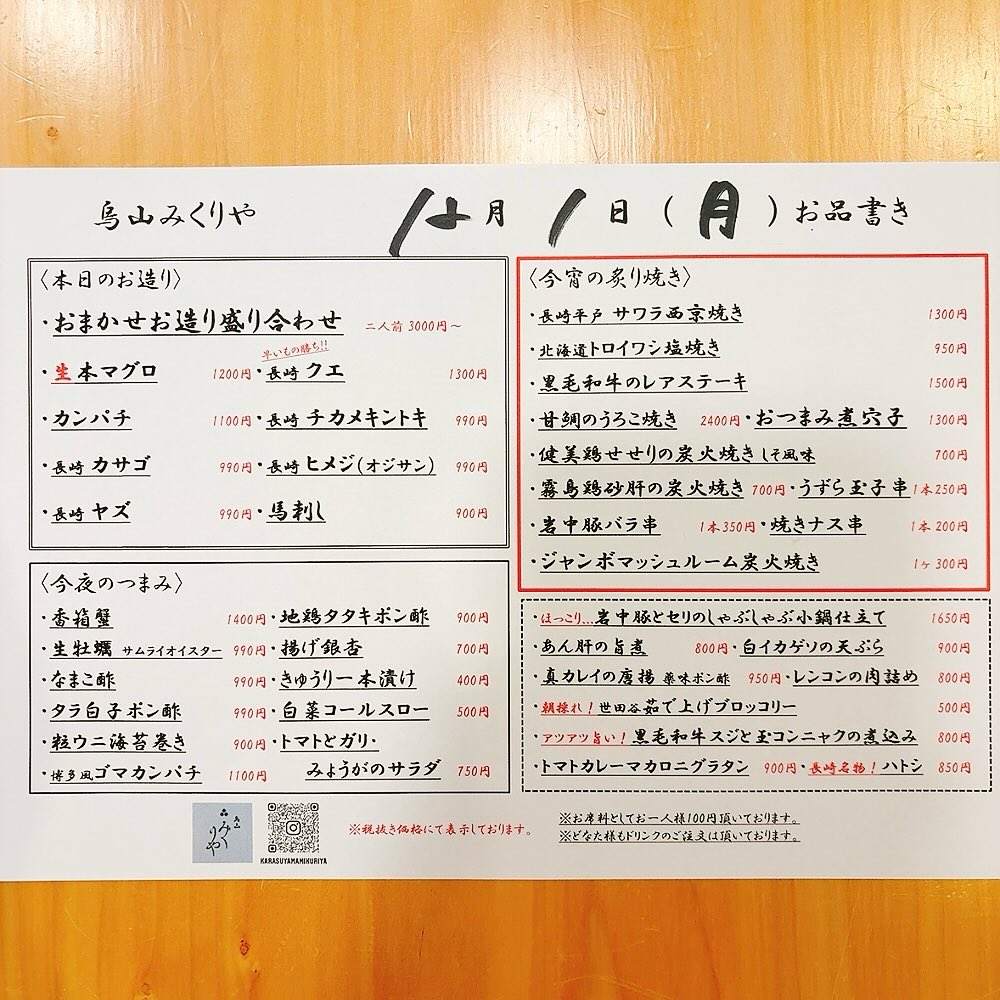 烏山みくりや 12月 1日(月)お品書き
〈本日のお造り〉
・おまかせお造り盛り合わせ 二人前 3000円〜
早いもの勝ち!!
・生本マグロ 1200円・長崎 クエ 1300円
・カンパチ 1100円・長崎 チカメキントキ 990円
・長崎 カサゴ 990円・長崎 ヒメジ(オジサン) 990円
・長崎 ヤズ 990円・馬刺し 900円
〈今夜のつまみ〉
・香箱蟹 1400円・地鶏タタキポン酢 900円
・生牡蠣 サムライオイスター 990円・揚げ銀杏 700円
・なまこ酢 990円・きゅうり一本漬け 400円
・タラ白子ポン酢 990円・白菜コールスロー 500円
・粒ウニ海苔巻き 900円・トマトとガリ・
・博多風ゴマカンパチ 1100円 みょうがのサラダ 750円
〈今宵の炙り焼き〉
・長崎平戸 サワラ西京焼き 1300円
・北海道トロイワシ塩焼き 950円
・黒毛和牛のレアステーキ 1500円
・甘鯛のうろこ焼き 2400円・おつまみ煮穴子 1300円
・健美鶏せせりの炭火焼き しそ風味 700円
・霧島鶏砂肝の炭火焼き 700円・うずら玉子串 1本250円
・岩中豚バラ串 1本350円・焼きナス串 1本 200円
・ジャンボマッシュルーム炭火焼き 1ヶ 300円
・ほっこり…岩中豚とセリのしゃぶしゃぶ小鍋仕立て 1650円
・あん肝の旨煮 800円・白イカゲソの天ぷら 900円
・真カレイの唐揚 薬味ポン酢 950円・レンコンの肉詰め 800円
・朝採れ!世田谷茹で上げブロッコリー 500円
・アツアツ旨い!黒毛和牛スジと玉コンニャクの煮込み 800円
・トマトカレーマカロニグラタン 900円・長崎名物!ハトシ 850円
烏山
みくりや
KARASUYAMAMIKURIYA
※税抜き価格にて表示しております。
※お席料としてお一人様100円頂いております。
※どなた様もドリンクのご注文は頂いております。